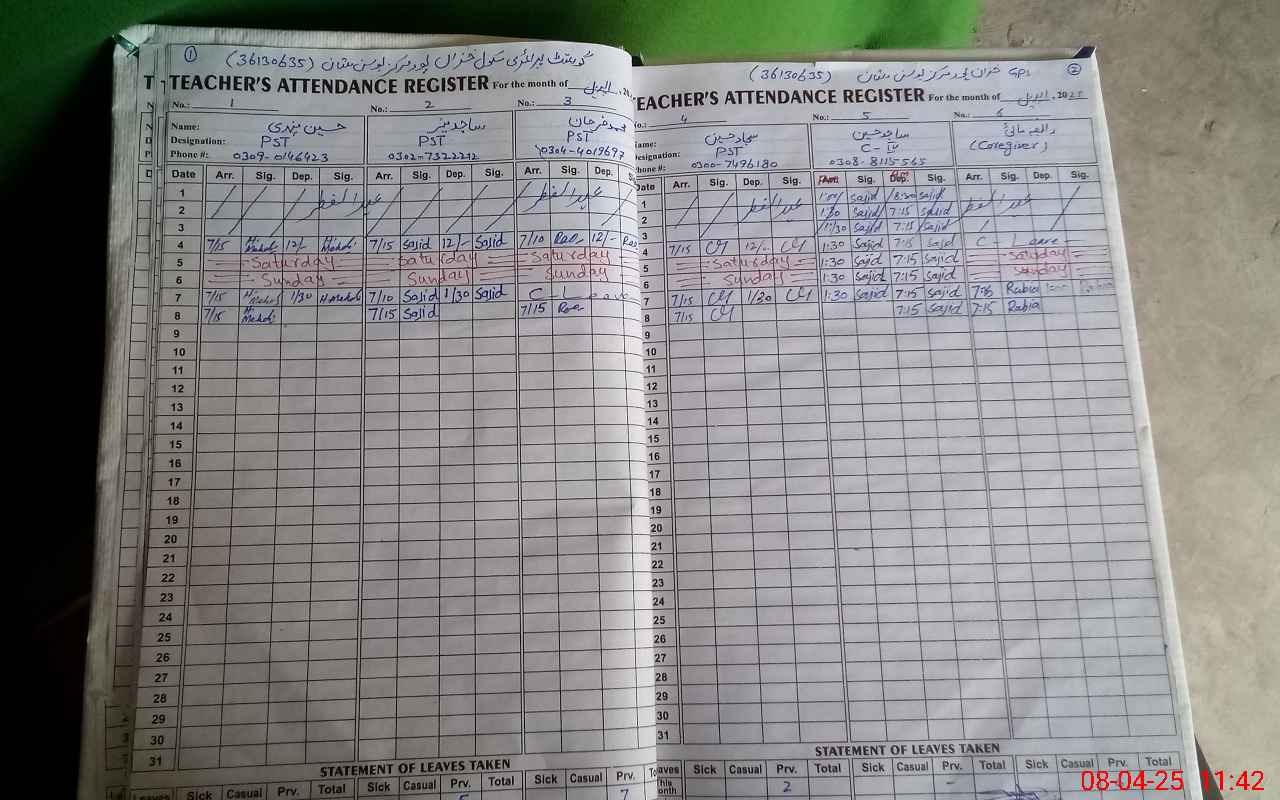 ① گورنمنٹ پرائمری سکول خزاں پور مرکز لوسن ملتان (36130635)
TEACHER'S ATTENDANCE REGISTER For the month of اپریل, 20
No.: 1 No.: 2 No.: 3
Name: حسین مہدی ساجد منیر محمد فرحان
Designation: PST PST PST
Phone #: 0309-0146423 0302-7322212 0304-4019697
Date Arr. Sig. Dep. Sig. Arr. Sig. Dep. Sig. Arr. Sig. Dep.
1 عید الفطر عید الفطر
2
3
4 7/15 H. Mehdi 12/- Mehdi 7/15 Sajid 12/- Sajid 7/10 12/-
5 Saturday Saturday Saturday
6 Sunday Sunday Sunday
7 7/15 1/30 7/10 Sajid 1/30 Sajid C - Leave
8 7/15 H. Mehdi 7/15 Sajid 7/15
9
10
11
12
13
14
15
16
17
18
19
20
21
22
23
24
25
26
27
28
29
30
31
STATEMENT OF LEAVES TAKEN
Leaves Sick Casual Prv. Total Sick Casual Prv. Total Sick Casual Prv.
5 7
GPS خزاں پور مرکز لوسن ملتان (36130635) ②
TEACHER'S ATTENDANCE REGISTER For the month of اپریل, 2025
No.: 4 No.: 5 No.: 6
Name: سجاد حسین ساجد حسین رابعہ مائی
Designation: PST C-IV (Caregiver)
Phone #: 0300-7496180 0308-8115565
Date Arr. Sig. Dep. Sig. Sig. Sig. Arr. Sig. Dep. Sig.
1 عید الفطر Sajid 8:30 Sajid عید الفطر
2 1:30 Sajid 7:15 Sajid
3 1/30 Sajid 7:15 Sajid
4 7/15 12/- 1:30 Sajid 7:15 Sajid C - Leave
5 Saturday 1:30 Sajid 7:15 Sajid Saturday
6 Sunday 1:30 Sajid 7:15 Sajid Sunday
7 7/15 1/30 1:30 Sajid 7:15 Sajid 7:15 Rabia
8 7/15 7:15 Sajid 7:15 Rabia
9
10
11
12
13
14
15
16
17
18
19
20
21
22
23
24
25
26
27
28
29
30
31
STATEMENT OF LEAVES TAKEN
Leaves Sick Casual Prv. Total Sick Casual Prv. Total Sick Casual Prv. Total
This month 2 -
08-04-25 11:42